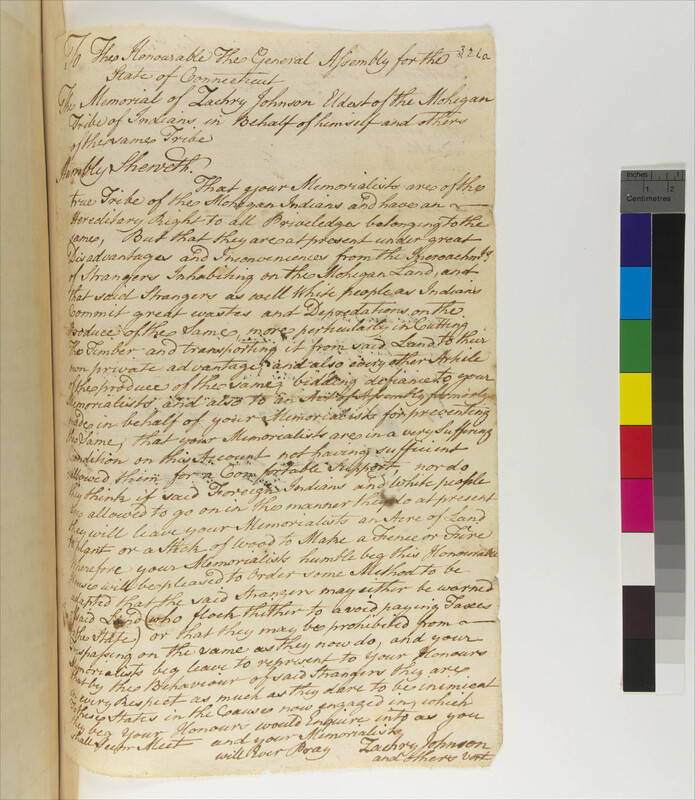 326a
To The Honourable The General Assembly for the
State of Connecticut
The Memorial of Zachry Johnson Eldest of the Mohegan
Tribe of Indians in Behalf of himself and others
of the same Tribe
Humbly Sheweth.
That your Memorialists are of the
true Tribe of the Mohegan Indians and have an
Hereditary Right to all Priveledges belonging to the
same, But that they are at present under great
Disadvantages and Inconveniences from the Incroachmts
of Strangers Inhabiting on the Mohegan Land, and
that said Strangers as well White people as Indians
Commit great wastes and Depredations on the
Produce of the Same, more perticularly in Cutting
the Timber and transporting it from said Land to their
own private advantage, and also every other Article
of the produce of the same, bidding defiance to your
Memorialists, and also to an Act of Assembly formerly
made in behalf of your Memorialists for preventing
the Same, that your Memorialists are in a very Suffering
Condition on this Account not having sufficient
allowed them for a Comfortable Support, nor do
they think if said Foreign Indians and White people
are allowed to go on in the manner they do at present
they will leave your Memorialists an Acre of Land
to plant or a Stick of Wood to Make a Fence or Fire
Therefore your Memorialists humble beg this Honourable
House will be pleased to Order some Method to be
adapted that the said Strangers may either be warned
said Land (who flock thither to avoid paying Taxes
the State) or that they may be prohibited from
Trespassing on the same as they now do, and your
Memorialists beg leave to represent to Your Honours
that by the Behaviour of said Strangers they are
in every Respect as much as they dare to be inimical
to these States in the Cause now engaged in, which
they beg Your Honours would Enquire into as you
shall Seem Meet and your Memorialists
will Ever Pray Zachry Johnson
and others